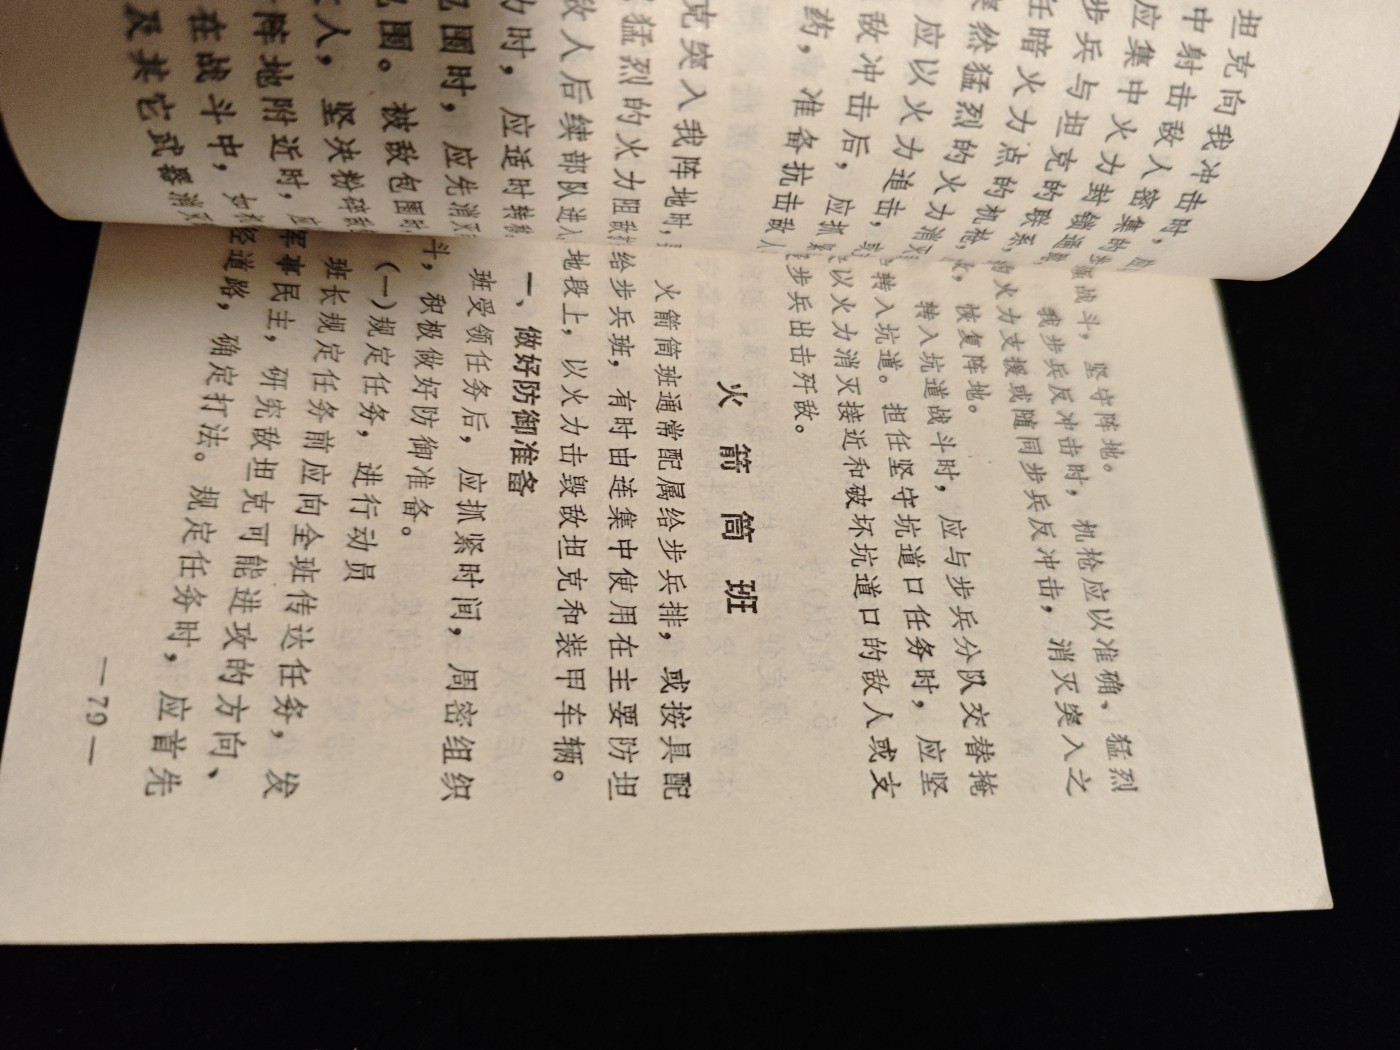 坦克向我冲击时，
中射击敌人密集的
应集中火力封锁通
步兵与坦克的联系，
任暗火力点的机枪，
突然猛烈的火力消灭
应以火力追击，
敌冲击后，应抓紧
药，准备抗击敌人
克突入我阵地时，
猛烈的火力阻敌
敌人后续部队进入
时，应适时转移
围时，应先消灭
围。被敌包围时
人，坚决粉碎
阵地附近时，应
在战斗中，如
及其它武器消灭
战斗，坚守阵地。
我步兵反冲击时，机枪应以准确、猛烈
火力支援或随同步兵反冲击，消灭突入之
，恢复阵地。
转入坑道战斗时，应与步兵分队交替掩
转入坑道。担任坚守坑道口任务时，应坚
以火力消灭接近和破坏坑道口的敌人或支
步兵出击歼敌。
火箭筒班
火箭筒班通常配属给步兵排，或按具配
给步兵班，有时由连集中使用在主要防坦
地段上，以火力击毁敌坦克和装甲车辆。
一、做好防御准备
班受领任务后，应抓紧时间，周密组织
斗，积极做好防御准备。
(一)规定任务，进行动员
班长规定任务前应向全班传达任务，发
军事民主，研究敌坦克可能进攻的方向、
经道路，确定打法。规定任务时，应首先
—79—